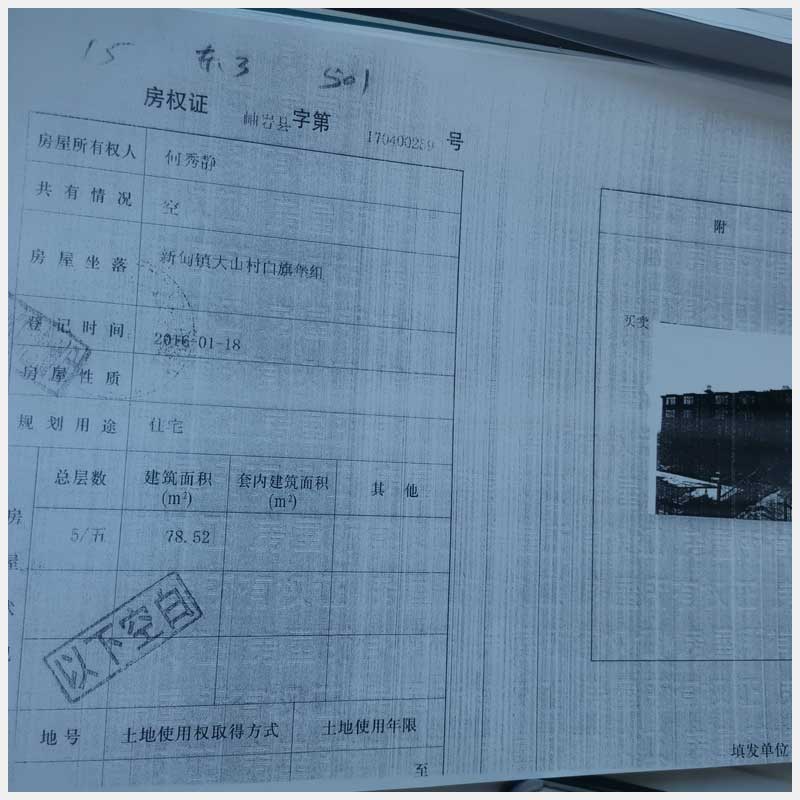 15 东3 501
房权证 岫岩县 字第 170400289 号
房屋所有权人 何秀静
共有情况 空
房屋坐落 新甸镇大山村白旗堡组
登记时间 2016-01-18
房屋性质
规划用途 住宅
房屋状况
总层数 建筑面积(m²) 套内建筑面积(m²) 其他
5/五 78.52
以下空白
地号 土地使用权取得方式 土地使用年限
至
附
买卖
填发单位